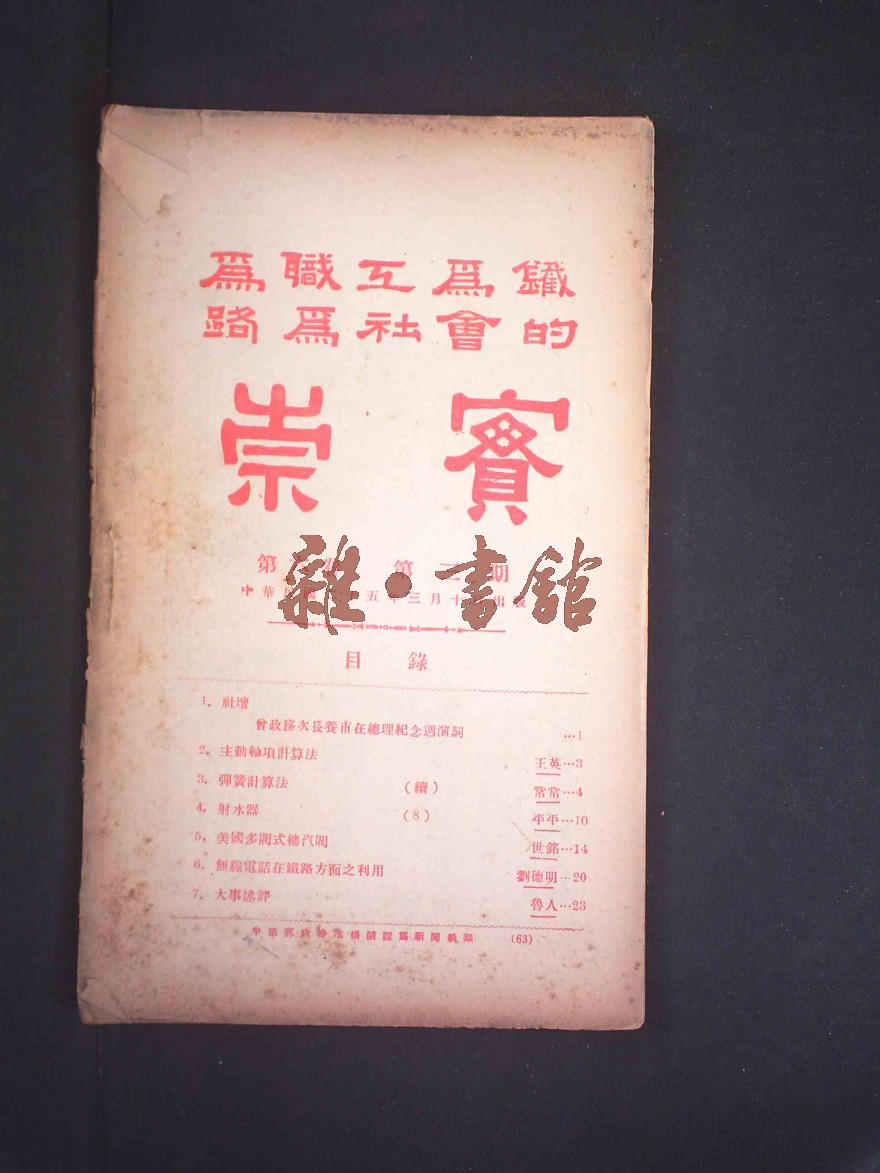 為職工為鐵
路為社會的
崇實
第 第三期
中華民國 五年三月十 出版
雜·書館
目錄
1. 社壇
曾政務次長養甫在總理紀念週演詞 …1
2. 主動軸項計算法 王英…3
3. 彈簧計算法 (續) 常常…4
4. 射水器 (8) 平平…10
5. 美國多閥式總汽閥 世銘…14
6. 無線電話在鐵路方面之利用 劉德明…20
7. 大事述評 魯人…23
中華郵政特准掛號認為新聞紙類 (63)